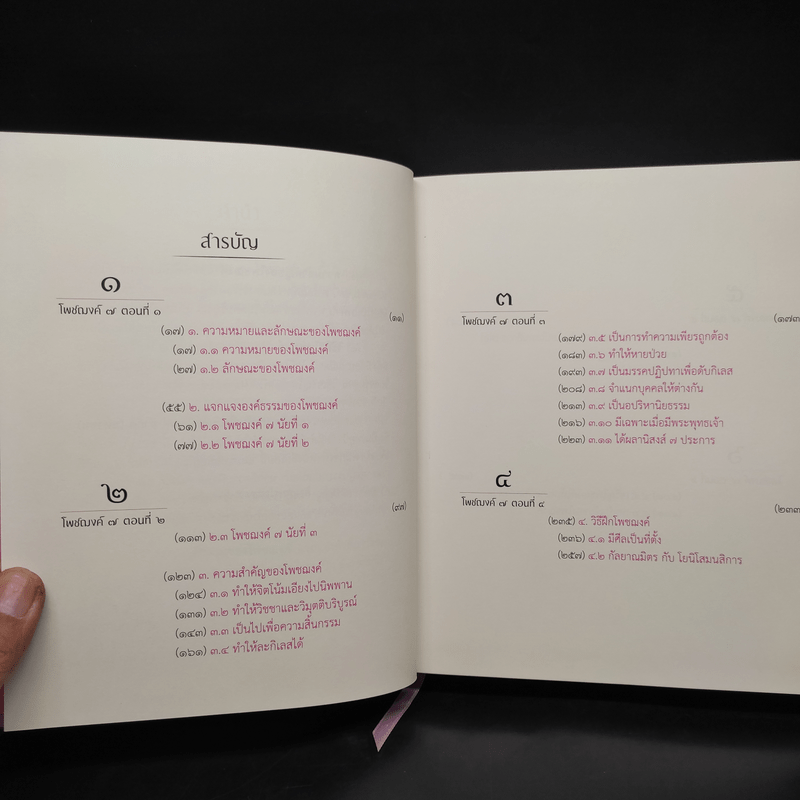 สารบัญ
๑
โพชฌงค์ ๗ ตอนที่ ๑
(๑๑)
(๑๗) ๑. ความหมายและลักษณะของโพชฌงค์
(๑๗) ๑.๑ ความหมายของโพชฌงค์
(๒๗) ๑.๒ ลักษณะของโพชฌงค์
(๕๕) ๒. แจกแจงองค์ธรรมของโพชฌงค์
(๖๑) ๒.๑ โพชฌงค์ ๗ นัยที่ ๑
(๗๗) ๒.๒ โพชฌงค์ ๗ นัยที่ ๒
๒
โพชฌงค์ ๗ ตอนที่ ๒
(๙๗)
(๑๑๓) ๒.๓ โพชฌงค์ ๗ นัยที่ ๓
(๑๒๓) ๓. ความสำคัญของโพชฌงค์
(๑๒๔) ๓.๑ ทำให้จิตโน้มเอียงไปนิพพาน
(๑๓๑) ๓.๒ ทำให้วิชชาและวิมุตติบริบูรณ์
(๑๔๓) ๓.๓ เป็นไปเพื่อความสิ้นกรรม
(๑๖๑) ๓.๔ ทำให้ละกิเลสได้
๓
โพชฌงค์ ๗ ตอนที่ ๓
(๑๗๓
(๑๗๙) ๓.๕ เป็นการทำความเพียรถูกต้อง
(๑๘๓) ๓.๖ ทำให้หายป่วย
(๑๙๓) ๓.๗ เป็นมรรคปฏิปทาเพื่อดับกิเลส
(๒๐๘) ๓.๘ จำแนกบุคคลให้ต่างกัน
(๒๑๓) ๓.๙ เป็นอปริหานิยธรรม
(๒๑๖) ๓.๑๐ มีเฉพาะเมื่อมีพระพุทธเจ้า
(๒๒๓) ๓.๑๑ ได้ผลานิสงส์ ๗ ประการ
๔
โพชฌงค์ ๗ ตอนที่ ๔
(๒๓๓
(๒๓๕) ๔. วิธีฝึกโพชฌงค์
(๒๓๖) ๔.๑ มีศีลเป็นที่ตั้ง
(๒๕๗) ๔.๒ กัลยาณมิตร กับ โยนิโสมนสิการ